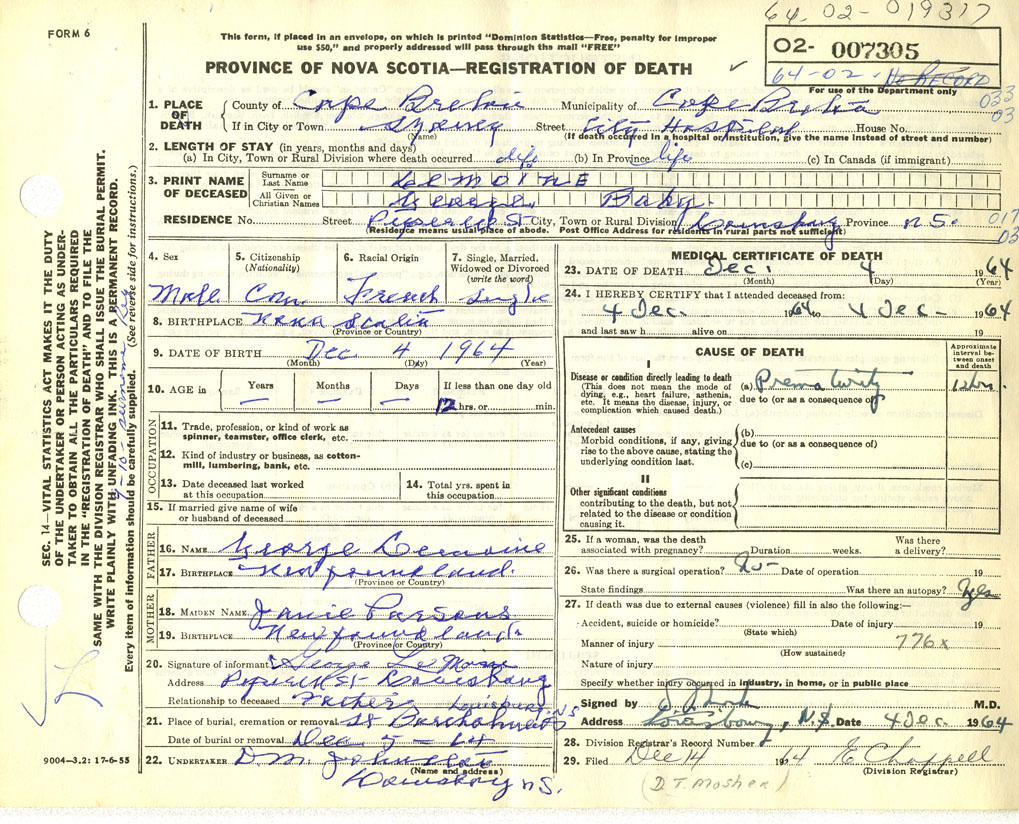 64-02-019317
FORM 6
This form, if placed in an envelope, on which is printed "Dominion Statistics—Free, penalty for improper
use $50," and properly addressed will pass through the mail "FREE"
02- 007305
PROVINCE OF NOVA SCOTIA—REGISTRATION OF DEATH
64-02- No RECORD
For use of the Department only
033
03
1. PLACE OF DEATH
County of Cape Breton Municipality of Cape Breton
If in City or Town Sydney Street City Hospital House No.
(Name) (If death occurred in a hospital or institution, give the name instead of street and number)
2. LENGTH OF STAY (in years, months and days)
(a) In City, Town or Rural Division where death occurred life (b) In Province life (c) In Canada (if immigrant)
3. PRINT NAME OF DECEASED
Surname or Last Name LEMOINE
All Given or Christian Names George Baby
RESIDENCE No. Street St City, Town or Rural Division Louisburg Province N.S.
(Residence means usual place of abode. Post Office Address for residents in rural parts not sufficient)
017
03
4. Sex
Male
5. Citizenship
(Nationality)
Can.
6. Racial Origin
French
7. Single, Married,
Widowed or Divorced
(write the word)
Single
8. BIRTHPLACE Nova Scotia
(Province or Country)
9. DATE OF BIRTH Dec 4 1964
(Month) (Day) (Year)
10. AGE in Years Months Days If less than one day old
— — — 12 hrs. or min.
OCCUPATION
11. Trade, profession, or kind of work as
spinner, teamster, office clerk, etc.
12. Kind of industry or business, as cotton-
mill, lumbering, bank, etc.
13. Date deceased last worked
at this occupation
14. Total yrs. spent in
this occupation
15. If married give name of wife
or husband of deceased
FATHER
16. NAME George Lemoine
17. BIRTHPLACE Newfoundland
(Province or Country)
MOTHER
18. MAIDEN NAME Janie Parsons
19. BIRTHPLACE Newfoundland
(Province or Country)
20. Signature of informant George LeMoine
Address St- Louisbourg
Relationship to deceased Father Louisburg N.S.
21. Place of burial, cremation or removal St Bartholomew
Date of burial or removal Dec 5-64
22. UNDERTAKER D.M. Johnston
(Name and address)
Louisburg N.S.
MEDICAL CERTIFICATE OF DEATH
23. DATE OF DEATH Dec. 4 1964
(Month) (Day) (Year)
24. I HEREBY CERTIFY that I attended deceased from:
4 Dec. 1964 to 4 Dec- 1964
and last saw h alive on 19
CAUSE OF DEATH
Approximate
interval be-
tween onset
and death
I
Disease or condition directly leading to death
(This does not mean the mode of
dying, e.g., heart failure, asthenia,
etc. It means the disease, injury, or
complication which caused death.)
(a) Prematurity 12 hrs.
due to (or as a consequence of)
Antecedent causes
Morbid conditions, if any, giving
rise to the above cause, stating the
underlying condition last.
(b)
due to (or as a consequence of)
(c)
II
Other significant conditions
contributing to the death, but not
related to the disease or condition
causing it.
25. If a woman, was the death
associated with pregnancy? Duration weeks. Was there
a delivery?
26. Was there a surgical operation? No- Date of operation 19
State findings Was there an autopsy? Yes
27. If death was due to external causes (violence) fill in also the following:—
Accident, suicide or homicide? Date of injury 19
(State which)
Manner of injury 776x
(How sustained)
Nature of injury
Specify whether injury occurred in industry, in home, or in public place
Signed by M.D.
Address Louisbourg, N.S. Date 4 Dec. 1964
28. Division Registrar's Record Number
29. Filed Dec 14 1964 E Chappell
(Division Registrar)
(D.T. Mosher)
SEC. 14—VITAL STATISTICS ACT MAKES IT THE DUTY
OF THE UNDERTAKER OR PERSON ACTING AS UNDER-
TAKER TO OBTAIN ALL THE PARTICULARS REQUIRED
IN THE "REGISTRATION OF DEATH" AND TO FILE THE
SAME WITH THE DIVISION REGISTRAR WHO SHALL ISSUE THE BURIAL PERMIT.
WRITE PLAINLY WITH UNFADING INK. THIS IS A PERMANENT RECORD.
Every item of information should be carefully supplied. (See reverse side for instructions.)
9004-3.2: 17-6-55